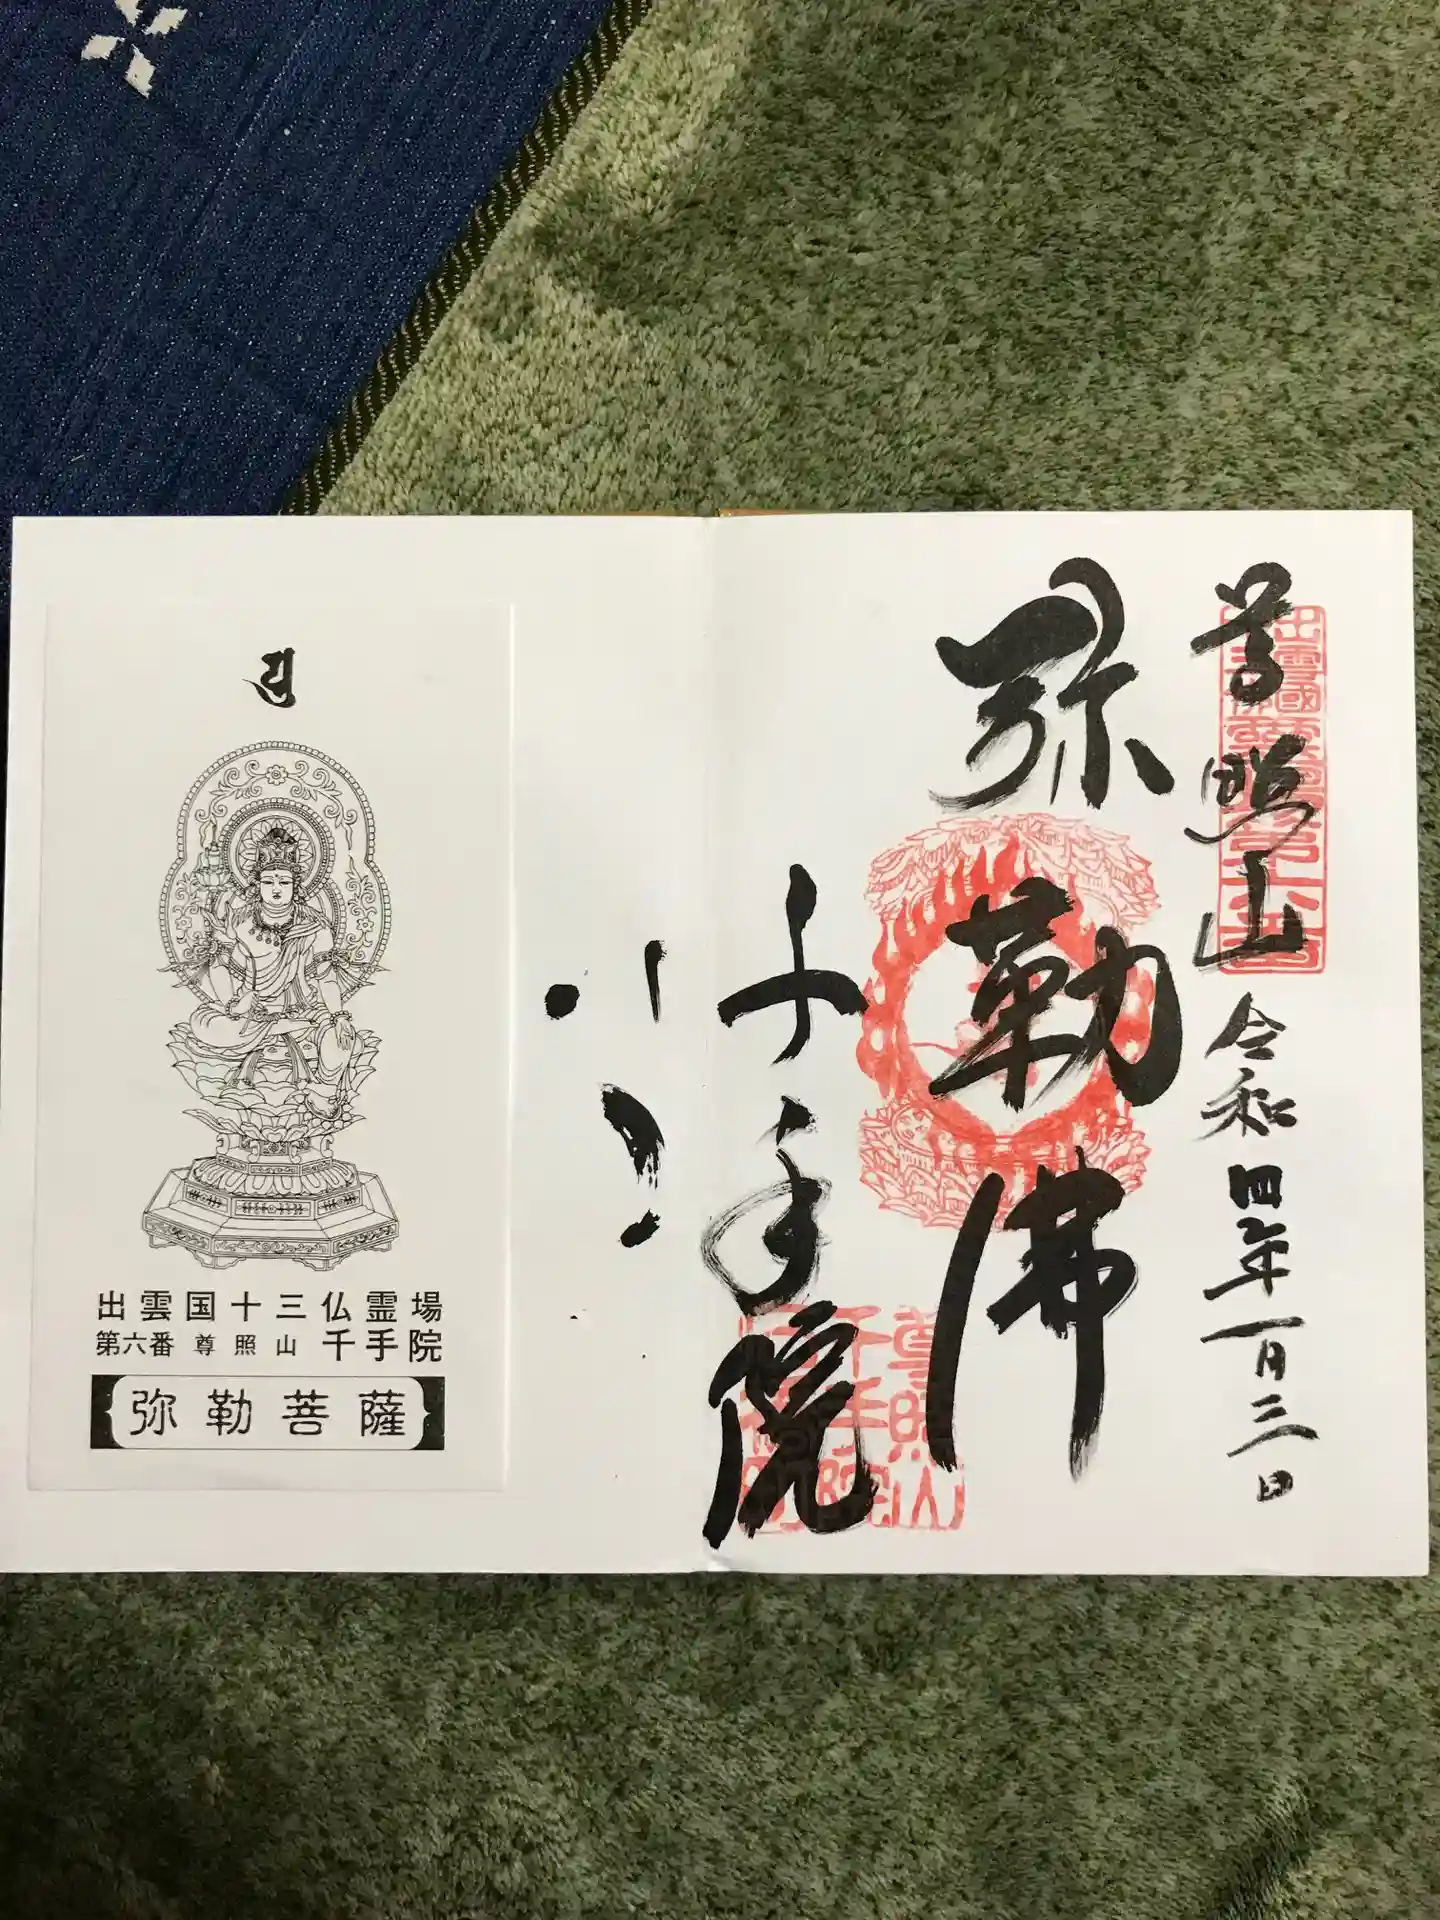 尊照山
令和四年一月三日
弥勒佛
千手院
出雲国十三仏霊場
第六番 尊照山 千手院
弥勒菩薩
尊照山
千手院